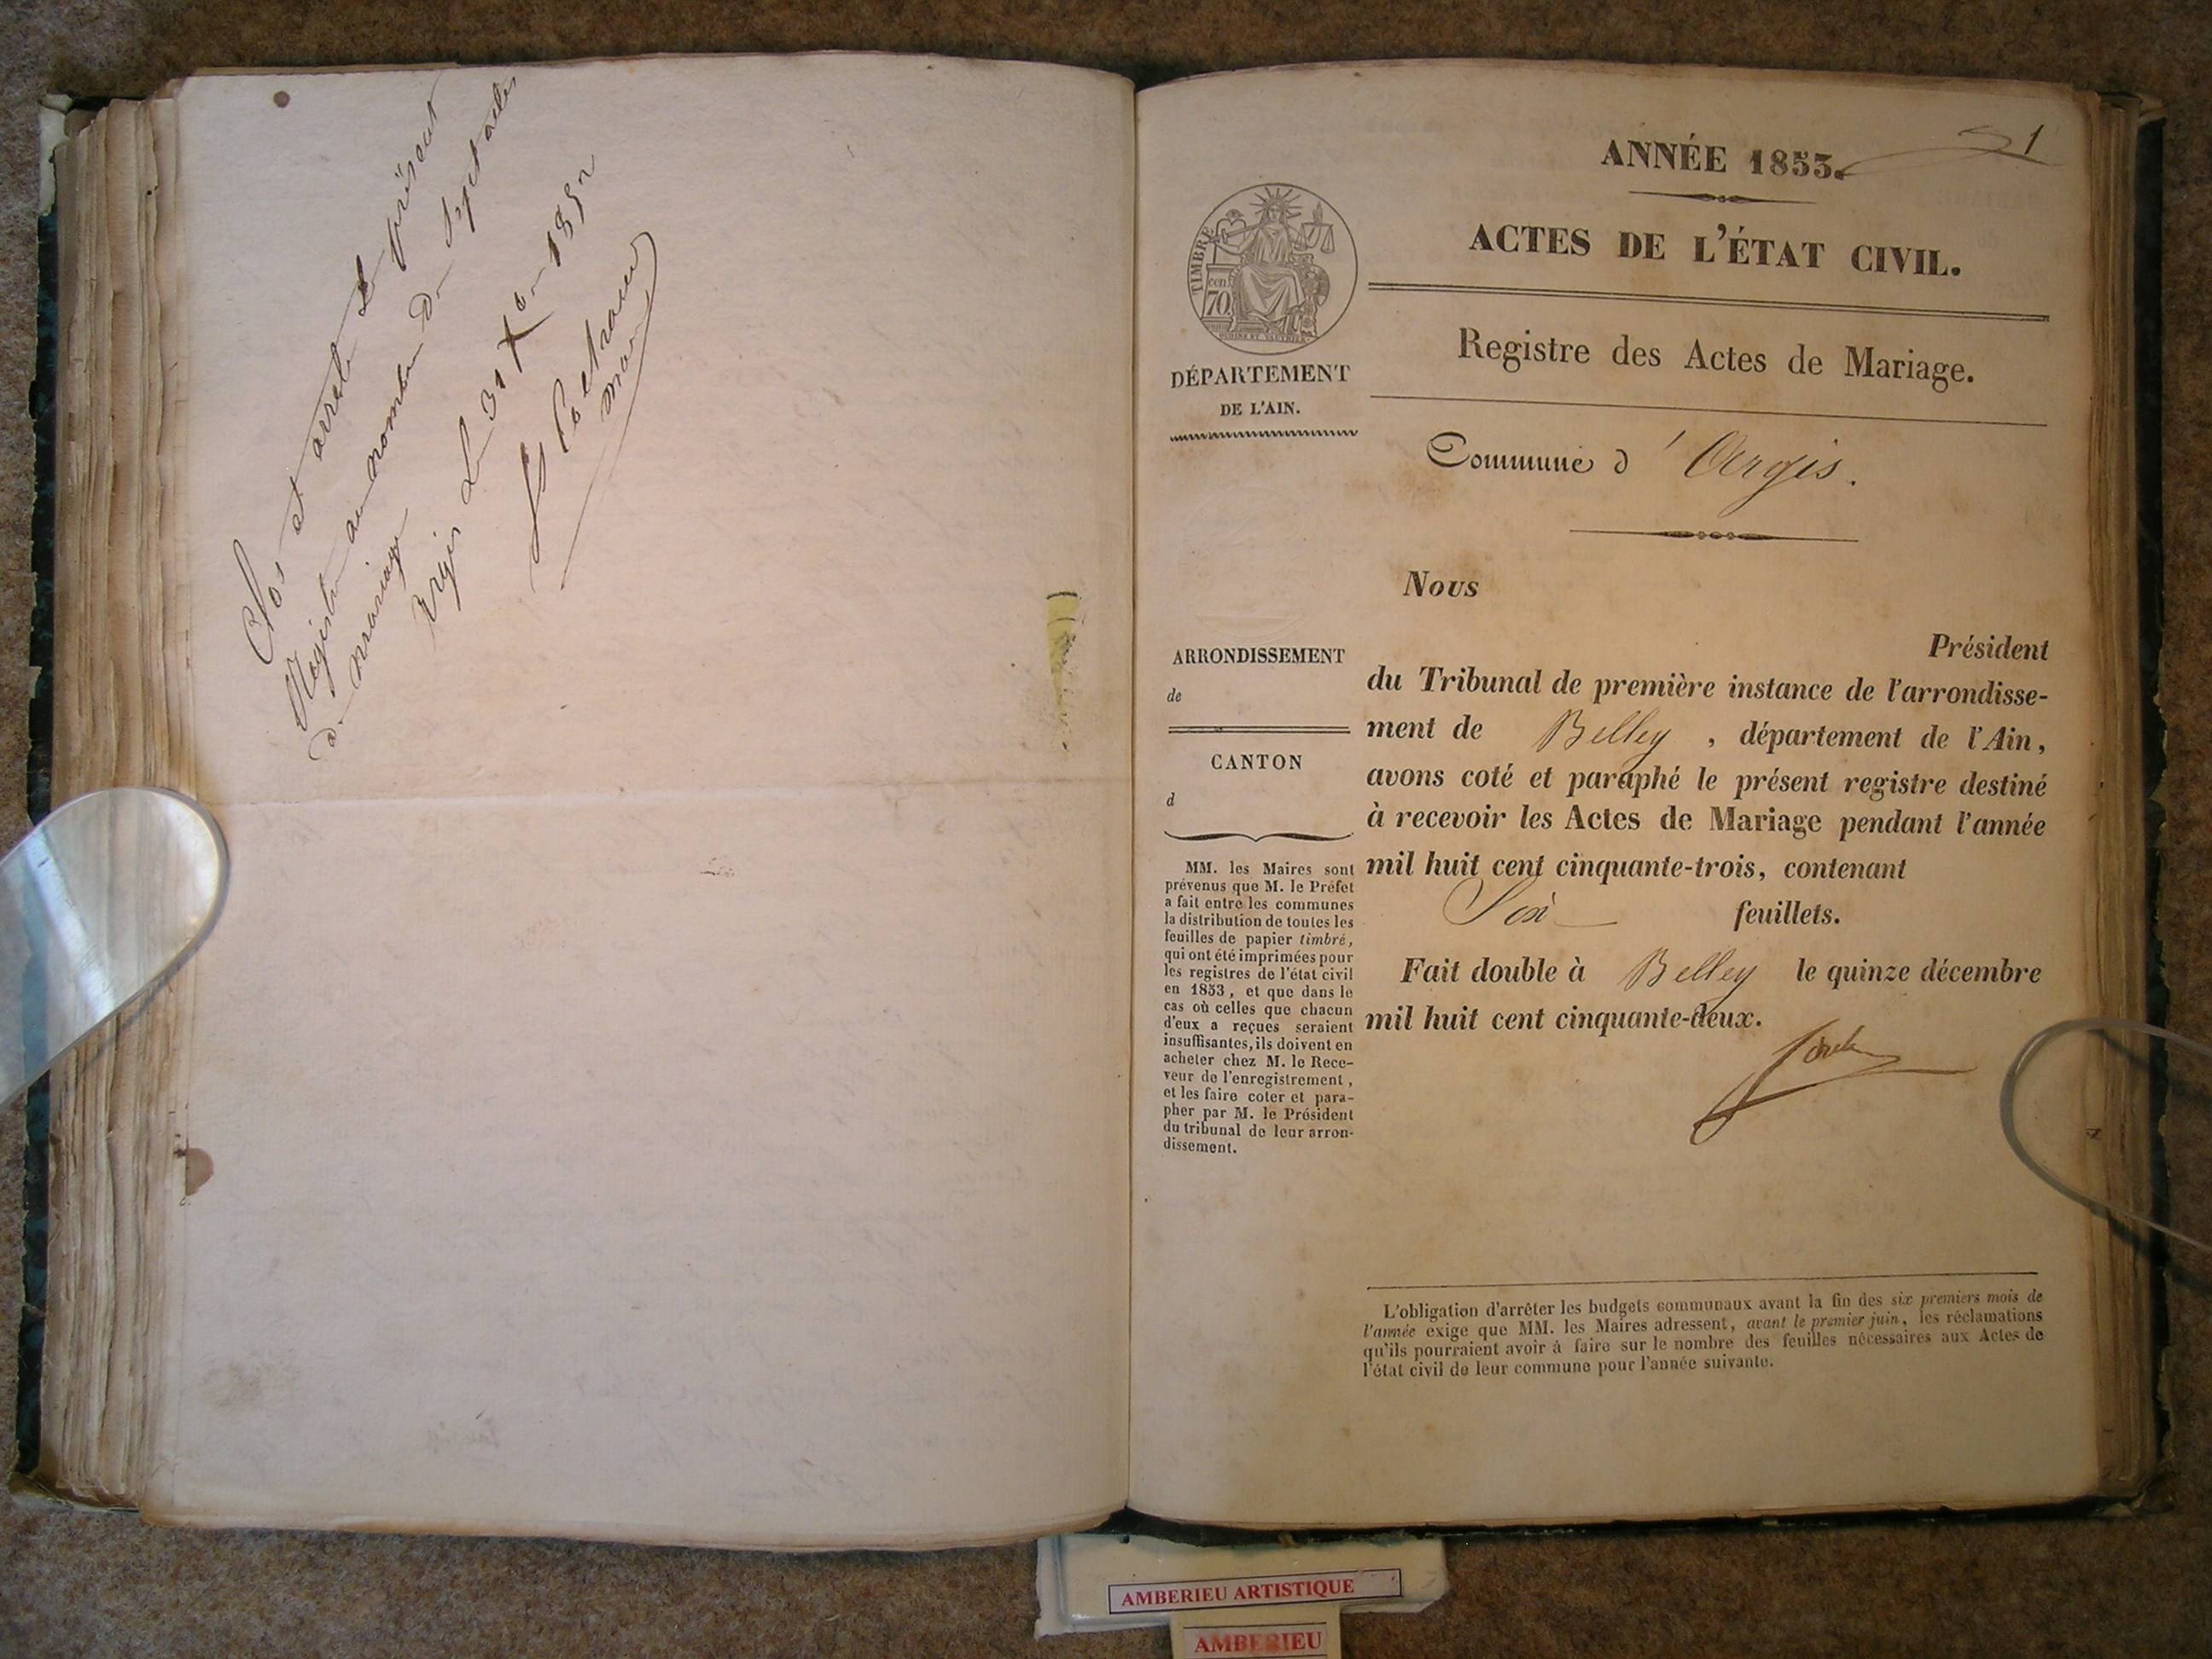 Clos et arrêté le présent
Registre au nombre de Sept actes
de mariage
Argis Le 31 Xbre 1852
maire
1
ANNÉE 1853.
ACTES DE L'ÉTAT CIVIL.
TIMBRE
70 cen.
DÉPARTEMENT
DE L'AIN.
Registre des Actes de Mariage.
Commune d'Argis.
Nous
Président
du Tribunal de première instance de l'arrondisse-
ment de Belley, département de l'Ain,
avons coté et paraphé le présent registre destiné
à recevoir les Actes de Mariage pendant l'année
mil huit cent cinquante-trois, contenant
Six feuillets.
Fait double à Belley le quinze décembre
mil huit cent cinquante-deux.
ARRONDISSEMENT
de
CANTON
d
MM. les Maires sont
prévenus que M. le Préfet
a fait entre les communes
la distribution de toutes les
feuilles de papier timbré,
qui ont été imprimées pour
les registres de l'état civil
en 1853, et que dans le
cas où celles que chacun
d'eux a reçues seraient
insuffisantes, ils doivent en
acheter chez M. le Rece-
veur de l'enregistrement,
et les faire coter et para-
pher par M. le Président
du tribunal de leur arron-
dissement.
L'obligation d'arrêter les budgets communaux avant la fin des six premiers mois de
l'année exige que MM. les Maires adressent, avant le premier juin, les réclamations
qu'ils pourraient avoir à faire sur le nombre des feuilles nécessaires aux Actes de
l'état civil de leur commune pour l'année suivante.
AMBERIEU ARTISTIQUE
AMBERIEU